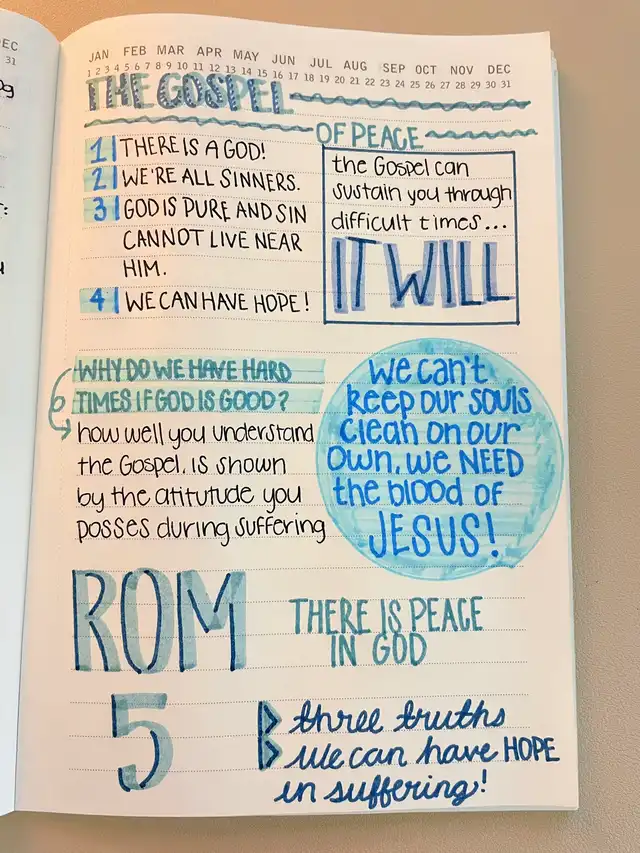 EC
31
JAN FEB MAR APR MAY JUN JUL AUG SEP OCT NOV DEC
1 2 3 4 5 6 7 8 9 10 11 12 13 14 15 16 17 18 19 20 21 22 23 24 25 26 27 28 29 30 31
THE GOSPEL
OF PEACE
1 THERE IS A GOD!
2 WE'RE ALL SINNERS.
3 GOD IS PURE AND SIN
CANNOT LIVE NEAR
HIM.
4 WE CAN HAVE HOPE!
the Gospel can
sustain you through
difficult times...
IT WILL
WHY DO WE HAVE HARD
TIMES IF GOD IS GOOD?
how well you understand
the Gospel. is shown
by the atitutude you
posses during suffering
we can't
keep our souls
clean on our
own. we NEED
the blood of
JESUS!
ROM
5
THERE IS PEACE
IN GOD
three truths
we can have HOPE
in suffering!